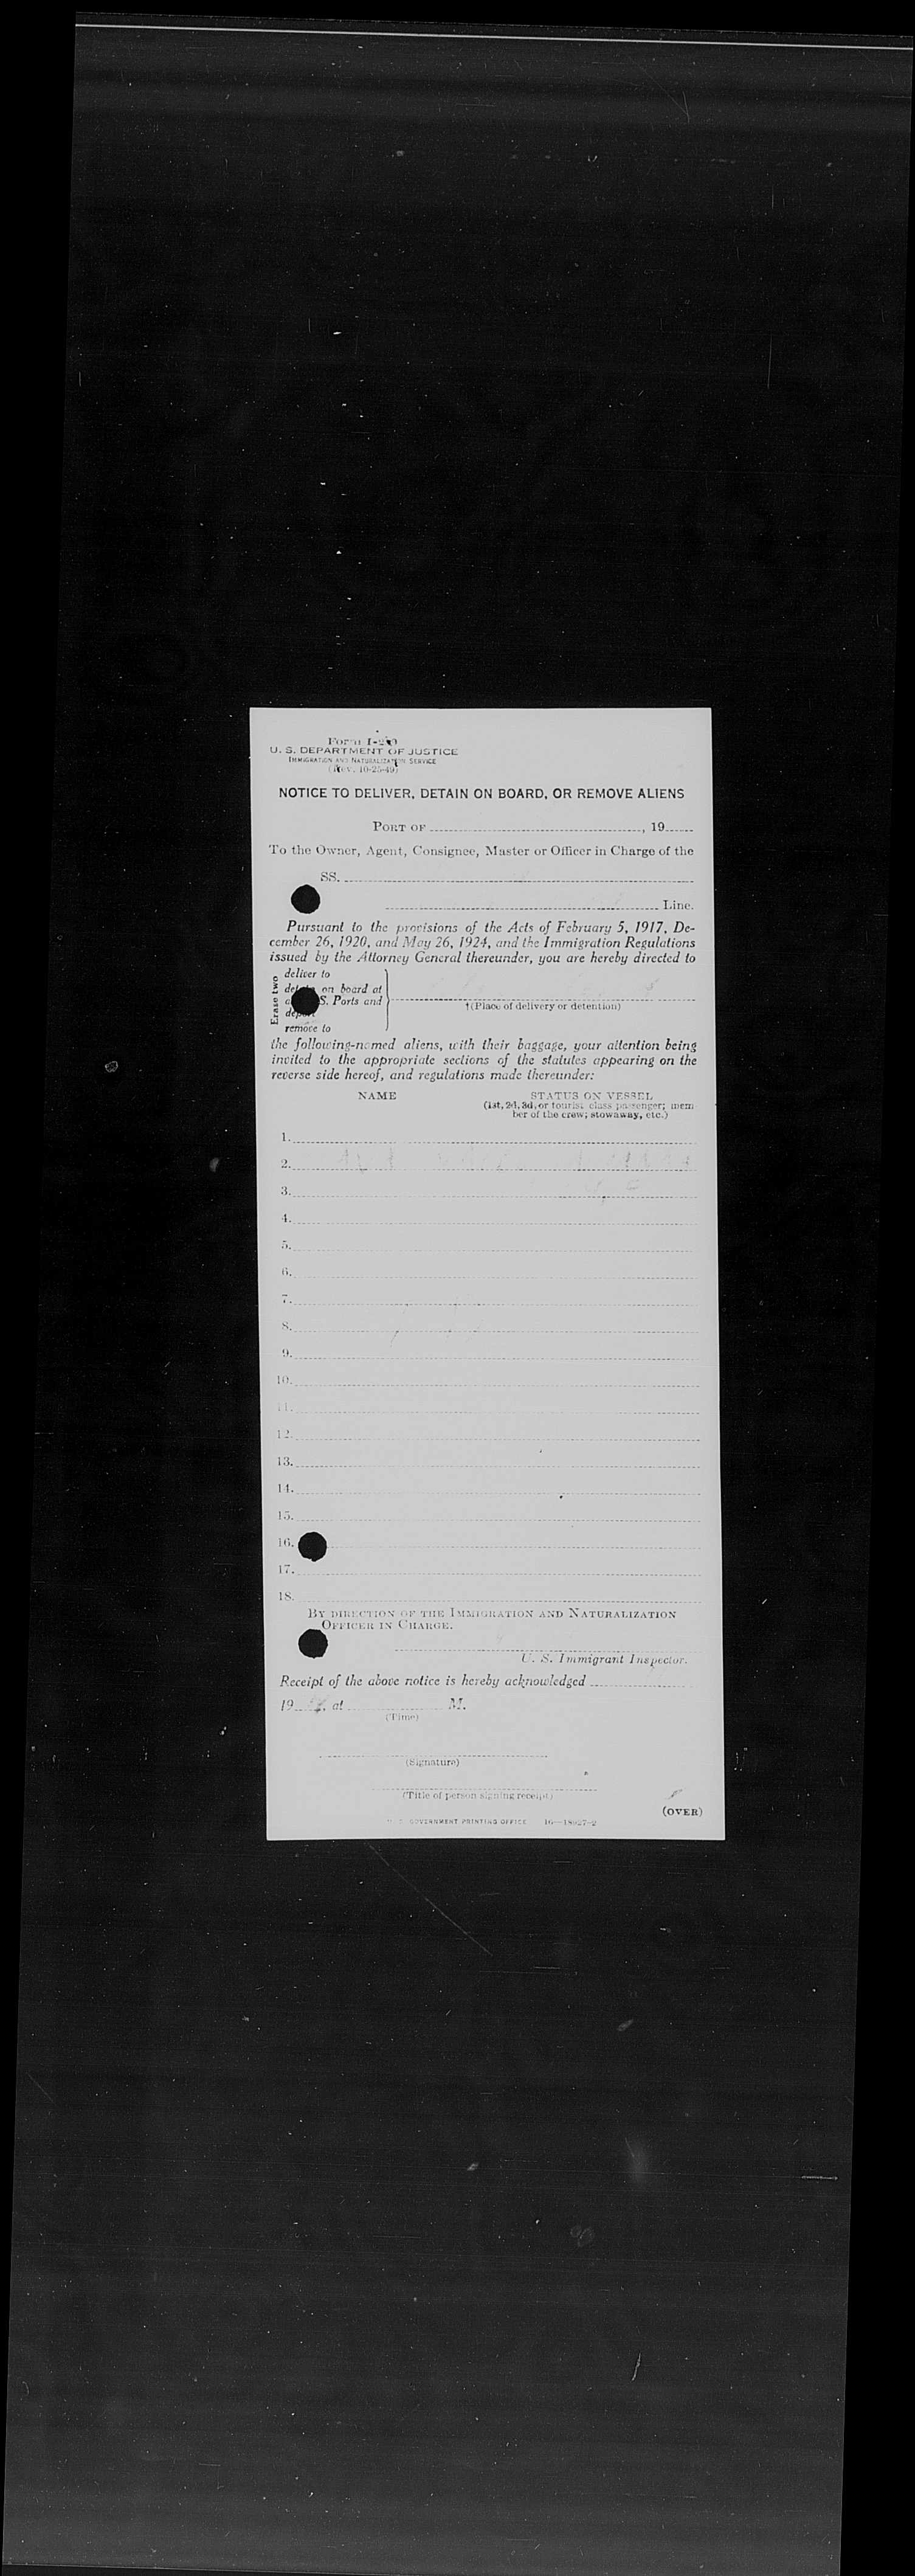 U. S. DEPARTMENT OF JUSTICE
IMMIGRATION AND NATURALIZATION SERVICE
(Rev. 10-25-49)
NOTICE TO DELIVER, DETAIN ON BOARD, OR REMOVE ALIENS
PORT OF , 19
To the Owner, Agent, Consignee, Master or Officer in Charge of the
SS.
Line.
Pursuant to the provisions of the Acts of February 5, 1917, De-
cember 26, 1920, and May 26, 1924, and the Immigration Regulations
issued by the Attorney General thereunder, you are hereby directed to
Erase two
deliver to
on board at
S. Ports and
remove to
†(Place of delivery or detention)
the following-named aliens, with their baggage, your attention being
invited to the appropriate sections of the statutes appearing on the
reverse side hereof, and regulations made thereunder:
NAME STATUS ON VESSEL
(1st, 2d, 3d, or tourist class passenger; mem
ber of the crew; stowaway, etc.)
1.
2.
3.
4.
5.
6.
7.
8.
9.
10.
11.
12.
13.
14.
15.
16.
17.
18.
BY DIRECTION OF THE IMMIGRATION AND NATURALIZATION
OFFICER IN CHARGE.
U. S. Immigrant Inspector.
Receipt of the above notice is hereby acknowledged
19 , at M.
(Time)
(Signature)
(Title of person signing receipt)
(OVER)
GOVERNMENT PRINTING OFFICE 16—18027-2